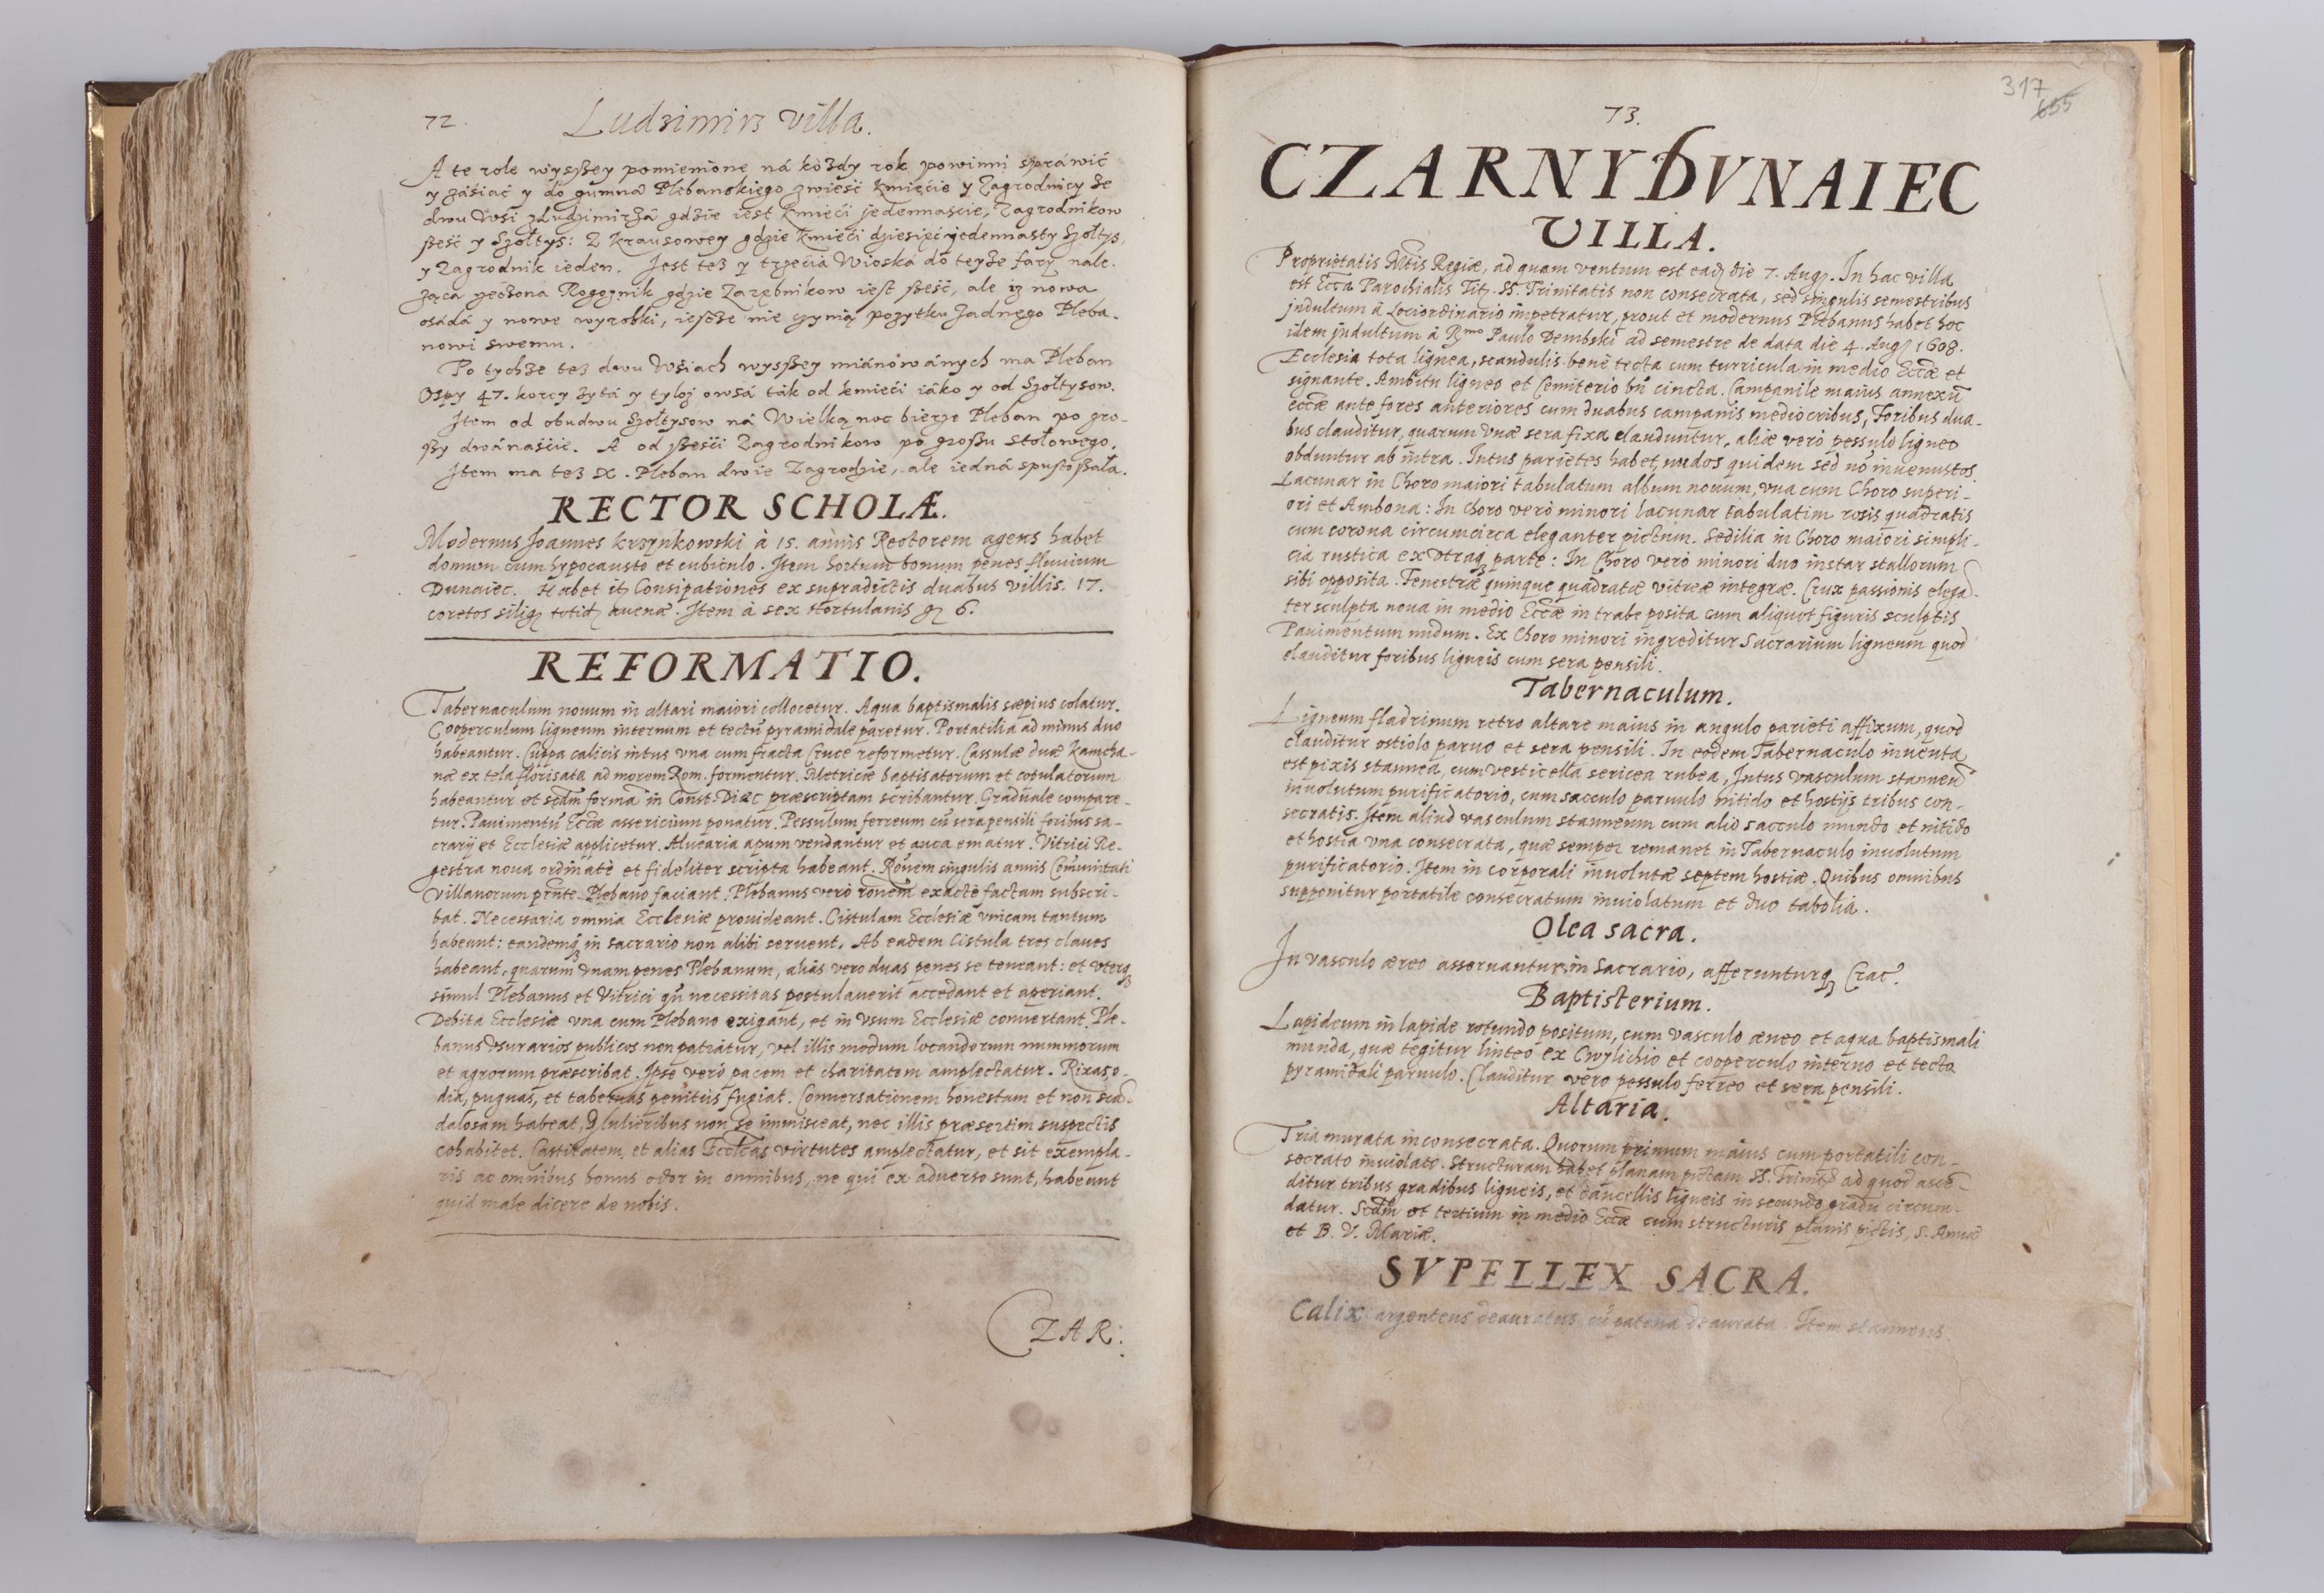 72.
Ludzimirz villa.
A te role wyszszey pomienione ná kożdy rok powinni spráwić
y záśiać y do gumna Plebanskiego zwieść kmiećie y Zagrodnicy ze
dwu Wsi z Ludzimirzá gdzie iest kmieći jedennaście, Zagrodnikow
sześć y Szołtys: Z Krausowey gdzie kmieći dziesięć jedennasty Szołtys,
y Zagrodnik ieden. Jest tez y trzećia Wioská do teyże fary nale.
żąca rzeczona Rogoznik gdzie Zarębnikow iest sześć, ale iz nowa
osádá y nowe wyrobki, iescze nie czynią pozytku żadnego Pleba.
nowi swemu.
Po tychże tez dwu Wśiach wyszszey miánowánych ma Pleban
Ospy 47. korcy żytá y tyloj owsá ták od kmieći iáko y od Szołtysow.
Item od obudwu Szołtysow ná Wielką noc bierze Pleban po gro-
szy dwánaśćie. A od sześći Zagrodnikow po groszu stołowego.
Item ma tez X. Pleban dwie Zagrodzie, ale iedná spustoszała.
RECTOR SCHOLÆ.
Modernus Joannes Krzynkowski à 15. annis Rectorem agens habet
domum cum hypocausto et cubiculo. Item hortum bonum penes fluuium
Dunaiec. Habet itz Consipationes ex supradictis duabus villis. 17.
coretos siligs totidz auenæ. Item à sex Hortulanis gz 6.
REFORMATIO.
Tabernaculum nouum in altari maiori collocetur. Aqua baptismalis sæpius colatur.
Cooperculum ligneum internum et tectū pyramidale paretur. Portatilia ad minus duo
habeantur. Cuppa calicis intus vna cum fracta Cruce reformetur. Cassulæ duæ Kamcha-
næ ex tela florisata ad morem Rom. formentur. Metricæ baptisatorum et copulatorum
habeantur et scdm formā in Const. Diæc præscriptam scribantur. Graduale compare-
tur. Pauimentū Eccæ assericium ponatur. Pessulum ferreum cū sera pensili foribus sa-
crarij et Ecclesiæ applicetur. Aluearia apum vendantur et auca ematur. Vitrici Re-
gestra noua ordinatè et fideliter scripta habeant. Rōnem singulis annis Cōmunitati
villanorum pnte Plebano faciant. Plebanus verò rōnem exactè factam subscri-
bat. Necessaria omnia Ecclesiæ prouideant. Cistulam Ecclesiæ vnicam tantum
habeant: eandemq in sacrario non alibi seruent. Ab eadem Cistula tres claues
habeant, quarum vnam penes Plebanum, alias vero duas penes se teneant: et vterq
simul Plebanus et Vitrici qn̄ necessitas postulauerit accedant et aperiant.
Debita Ecclesiæ vna cum Plebano exigant, et in vsum Ecclesiæ conuertant. Ple-
banus vsurarios publicos non patiatur, vel illis modum locandorum nummorum
et agrorum præscribat. Ipse verò pacem et charitatem amplectatur. Rixas, o-
dia, pugnas, et tabernas penitus fugiat. Conuersationem honestam et non scā-
dalosam habeat, Mulieribus non se immisceat, nec illis præsertim suspectis
cohabitet. Castitatem et alias Ecclcas virtutes amplectatur, et sit exempla-
ris ac omnibus bonus odor in omnibus, ne qui ex aduerso sunt, habeant
quid male dicere de nobis.
CZAR:
317
655
73.
CZARNY DVNAIEC
VILLA.
Proprietatis Mtis Regiæ, ad quam ventum est eadz die 7. Augz. In hac villa
est Ecca Parochialis Titz. SS. Trinitatis non consecrata, sed singulis semestribus
jndultum à Lociordinario impetratur, prout et modernus Plebanus habet hoc
idem jndultum à Rmo Paulo Dembski ad semestre de data die 4. Augz 1608.
Ecclesia tota lignea, scandulis benè tecta cum turricula in medio Eccæ et
signante. Ambitu ligneo et Cemiterio bn̄ cincta. Campanile maius annexū
eccæ ante fores anteriores cum duabus campanis mediocribus, Foribus dua-
bus clauditur, quarum vnæ sera fixa clauduntur, aliæ verò pessulo ligneo
obduntur ab intra. Intus parietes habet nudos quidem sed nō inuenustos.
Lacunar in Choro maiori tabulatum album nouum, vna cum Choro superi-
ori et Ambona: In choro verò minori lacunar tabulatim rosis quadratis
cum corona circumcirca eleganter pictum. Sedilia in Choro maiori simpli-
cia rustica ex vtraq parte: In Choro verò minori duo instar stallorum
sibi opposita. Fenestræ quinque quadratæ vitreæ integræ. Crux passionis elegā-
ter sculpta noua in medio Eccæ in trabe posita cum aliquot figuris sculptis
Pauimentum nudum. Ex Choro minori ingreditur Sacrarium ligneum quod
clauditur foribus ligneis cum sera pensili.
Tabernaculum.
Ligneum fladrinum retro altare maius in angulo parieti affixum, quod
clauditur ostiolo paruo et sera pensili. In eodem Tabernaculo inuenta
est pixis stannea, cum vesticella sericea rubea, Intus vasculum stanneū
inuolutum purificatorio, cum sacculo paruulo nitido et hostijs tribus con-
secratis. Item aliud vasculum stanneum cum alio sacculo mundo et nitido
et hostia vna consecrata, quæ semper remanet in Tabernaculo inuolutum
purificatorio. Item in corporali inuolutæ septem hostiæ. Quibus omnibus
supponitur portatile consecratum inuiolatum et duo tabolia.
Olea sacra.
In vasculo æreo asseruantur in Sacrario, afferunturq Crac.
Baptisterium.
Lapideum in lapide rotundo positum, cum vasculo æneo et aqua baptismali
munda, quæ tegitur linteo ex Cwylichio et cooperculo interno et tecto
pyramidali paruulo. Clauditur vero pessulo ferreo et sera pensili.
Altaria.
Tria murata inconsecrata. Quorum primum maius cum portatili con-
secrato inuiolato. Structuram habet planam pictam SS. Trinits ad quod ascē-
ditur tribus gradibus ligneis, et cancellis ligneis in secundo gradu circum-
datur. Scdm et tertium in medio Eccæ cum structuris planis pictis, S. Annæ
et B. V. Mariæ.
SVPELLEX SACRA.
Calix argenteus deauratus cū patena deaurata. Item stanneus.